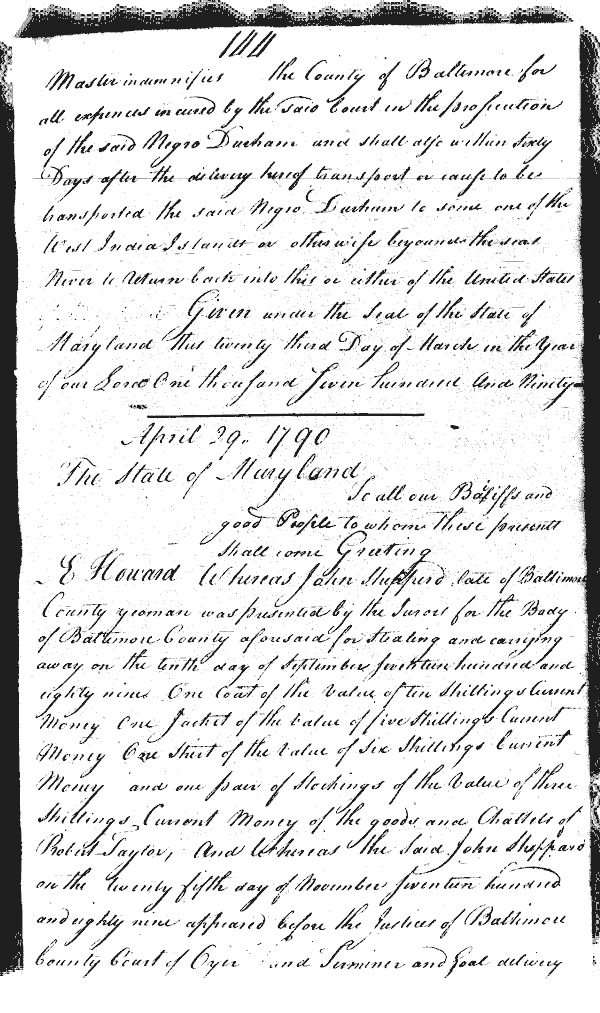 144
Master indemnifies the County of Baltimore for
all expences incured by the said Court in the prosicution
of the said Negro Durham and shall also within Sixty
Days after the delivery hereof transport or cause to be
transported the said Negro Durham to some one of the
West India Islands or otherwise beyound the seas
Never to Return back into this or either of the United States
Given under the Seal of the State of
Maryland this twenty third Day of March in the Year
of our Lord One thousand Seven hundred And Ninety
April 29. 1790
The State of Maryland
To all our Bailiffs and
good People to whom these presents
shall come Greeting
E Howard Whereas John Shepperd late of Baltimore
County yeoman was presented by the Jurors for the Body
of Baltimore County aforesaid for Stealing and carrying
away on the tenth day of September Seventeen hundred and
eighty nine One Coat of the Value of ten Shillings Current
Money One Jacket of the Value of five Shillings Current
Money One Shirt of the Value of Six Shillings Current
Money and one pair of Stockings of the Value of three
Shillings Current Money of the goods and Chattels of
Robert Taylor, And Whereas the Said John Sheppard
on the twenty fifth day of November Seventeen hundred
and eighty nine appeared before the Justices of Baltimore
County Court of Oyer and Terminer and Goal delivery